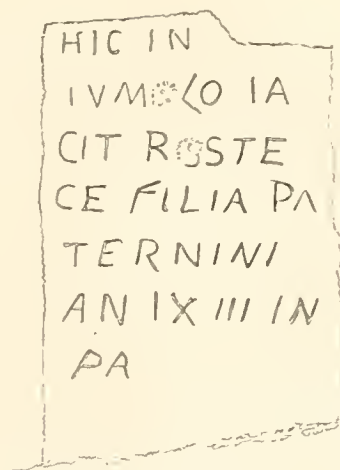 HIC IN
IVM LO IA
CIT R STE
CE FILIA PA
TERNINI
AN IX III IN
PA